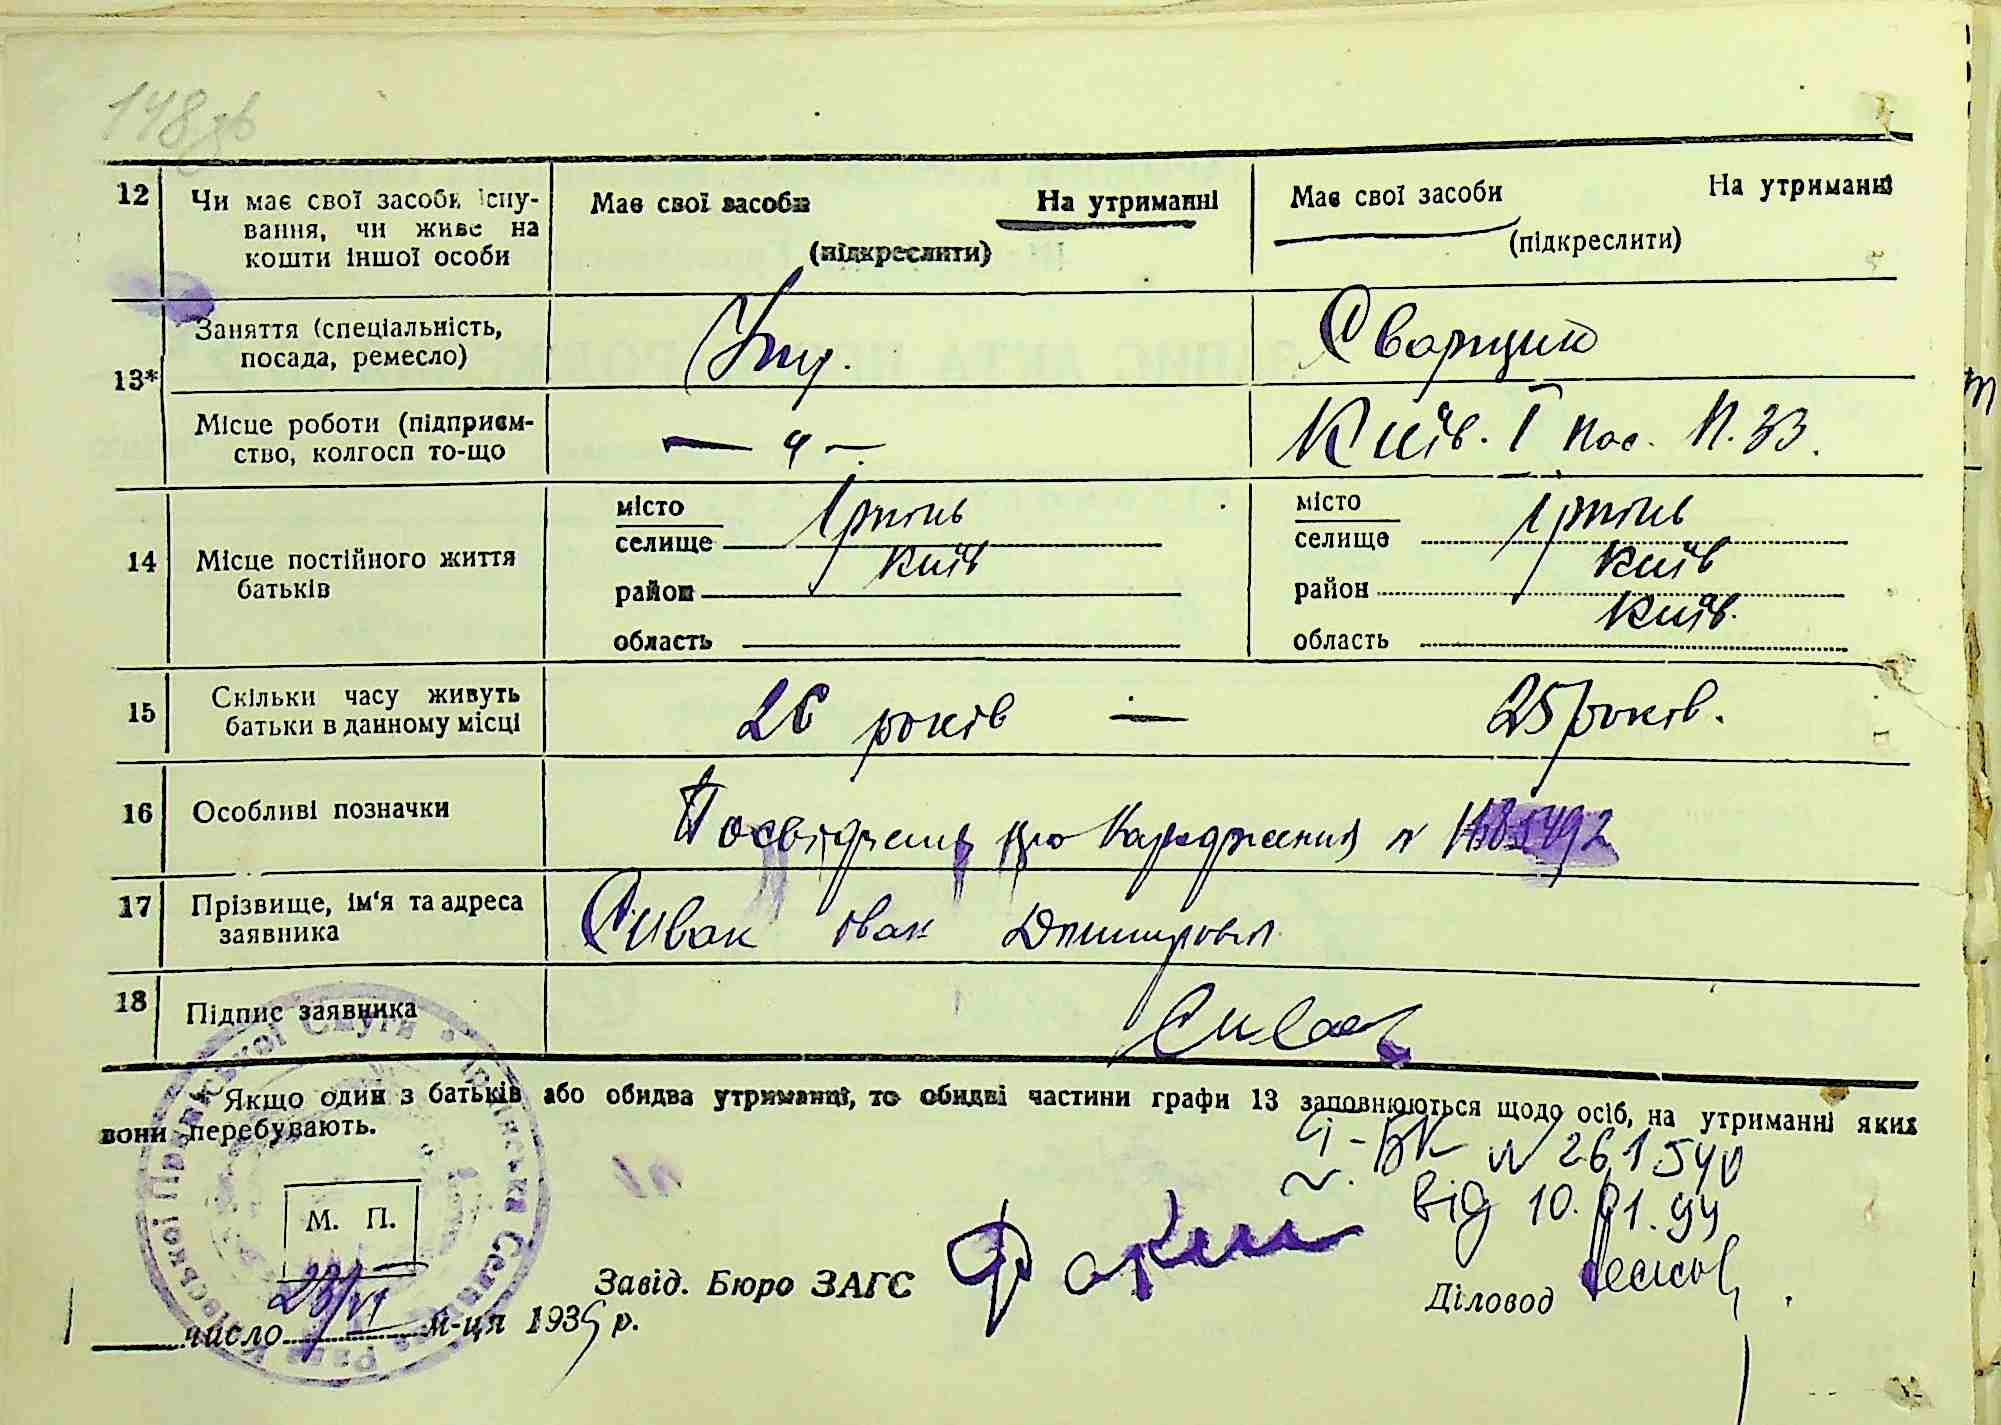 148зв
12 Чи має свої засоби існу-
вання, чи живе на
кошти іншої особи
Має свої засоби На утриманні
(підкреслити)
Має свої засоби На утриманні
(підкреслити)
13*
Заняття (спеціальність,
посада, ремесло)
Утр.
Сварщик
Місце роботи (підприєм-
ство, колгосп то-що
Київ. I пос.
14 Місце постійного життя
батьків
місто
селище Ірпінь
район Київ
область
місто
селище Ірпінь
район Київ
область Київ.
15 Скільки часу живуть
батьки в данному місці
26 років —
25 років.
16 Особливі позначки
Посвідчення про народження №
17 Прізвище, ім'я та адреса
заявника
Сивак Іван Дмитрович
18 Підпис заявника
Сивак
Якщо один з батьків або обидва утриманці, то обидві частини графи 13 заповнюються щодо осіб, на утриманні яких
вони перебувають.
І-БК № 261540
від 10.01.94
М. П.
Завід. Бюро ЗАГС
Діловод
число 23/VI м-ця 1935 р.
Ірпінська Селищна Рада Київської Приміської Смуги